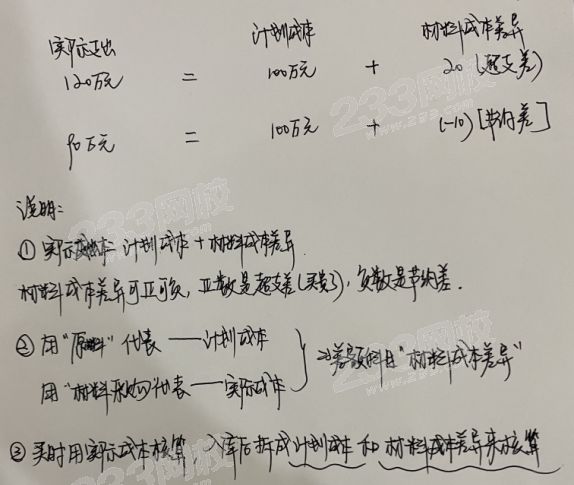 实际支出 计划成本 材料成本差异
120万元 = 100万元 + 20 (超支差)
90万元 = 100万元 + (-10) [节约差]
说明:
① 实际成本= 计划成本 + 材料成本差异.
材料成本差异可正可负, 正数是超支差(买贵了), 负数是节约差.
② 用"原材料"代表 —— 计划成本
用"材料采购"代表 —— 实际成本 } 差额科目"材料成本差异"
③ 买时用实际成本核算 入库后拆成计划成本 和 材料成本差异来核算
233网校
www.233.com